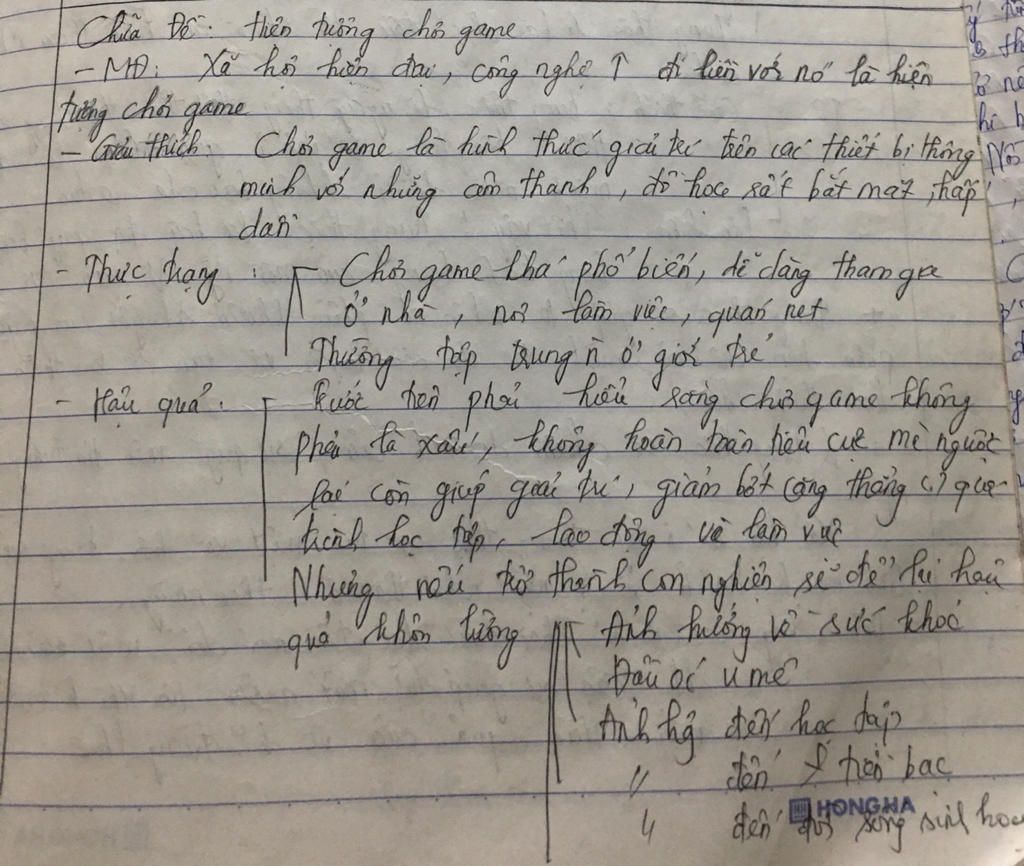 Chữa Đề: hiện tượng chơi game
- MĐ: Xã hội hiện đại, công nghệ ↑ đi liền với nó là hiện
tượng chơi game
- Giải thích: Chơi game là hình thức giải trí trên các thiết bị thông
minh với những âm thanh, đồ họa rất bắt mắt, hấp
dẫn
- Thực trạng: Chơi game khá phổ biến, dễ dàng tham gia
ở nhà, nơi làm việc, quán net
Thường tập trung n ở giới trẻ
- Hậu quả: Trước tiên phải hiểu rằng chơi game không
phải là xấu, không hoàn toàn tiêu cực mà người
lại còn giúp giải trí, giảm bớt căng thẳng quá
trình học tập, lao động và làm việc
Nhưng nếu trở thành con nghiện sẽ để lại hậu
quả khôn lường Ảnh hưởng về sức khoẻ
Đầu óc u mê
Ảnh hg̉ đến học tập
" đến tiền bạc
" đến đời sống sinh hoạ
HONG HA